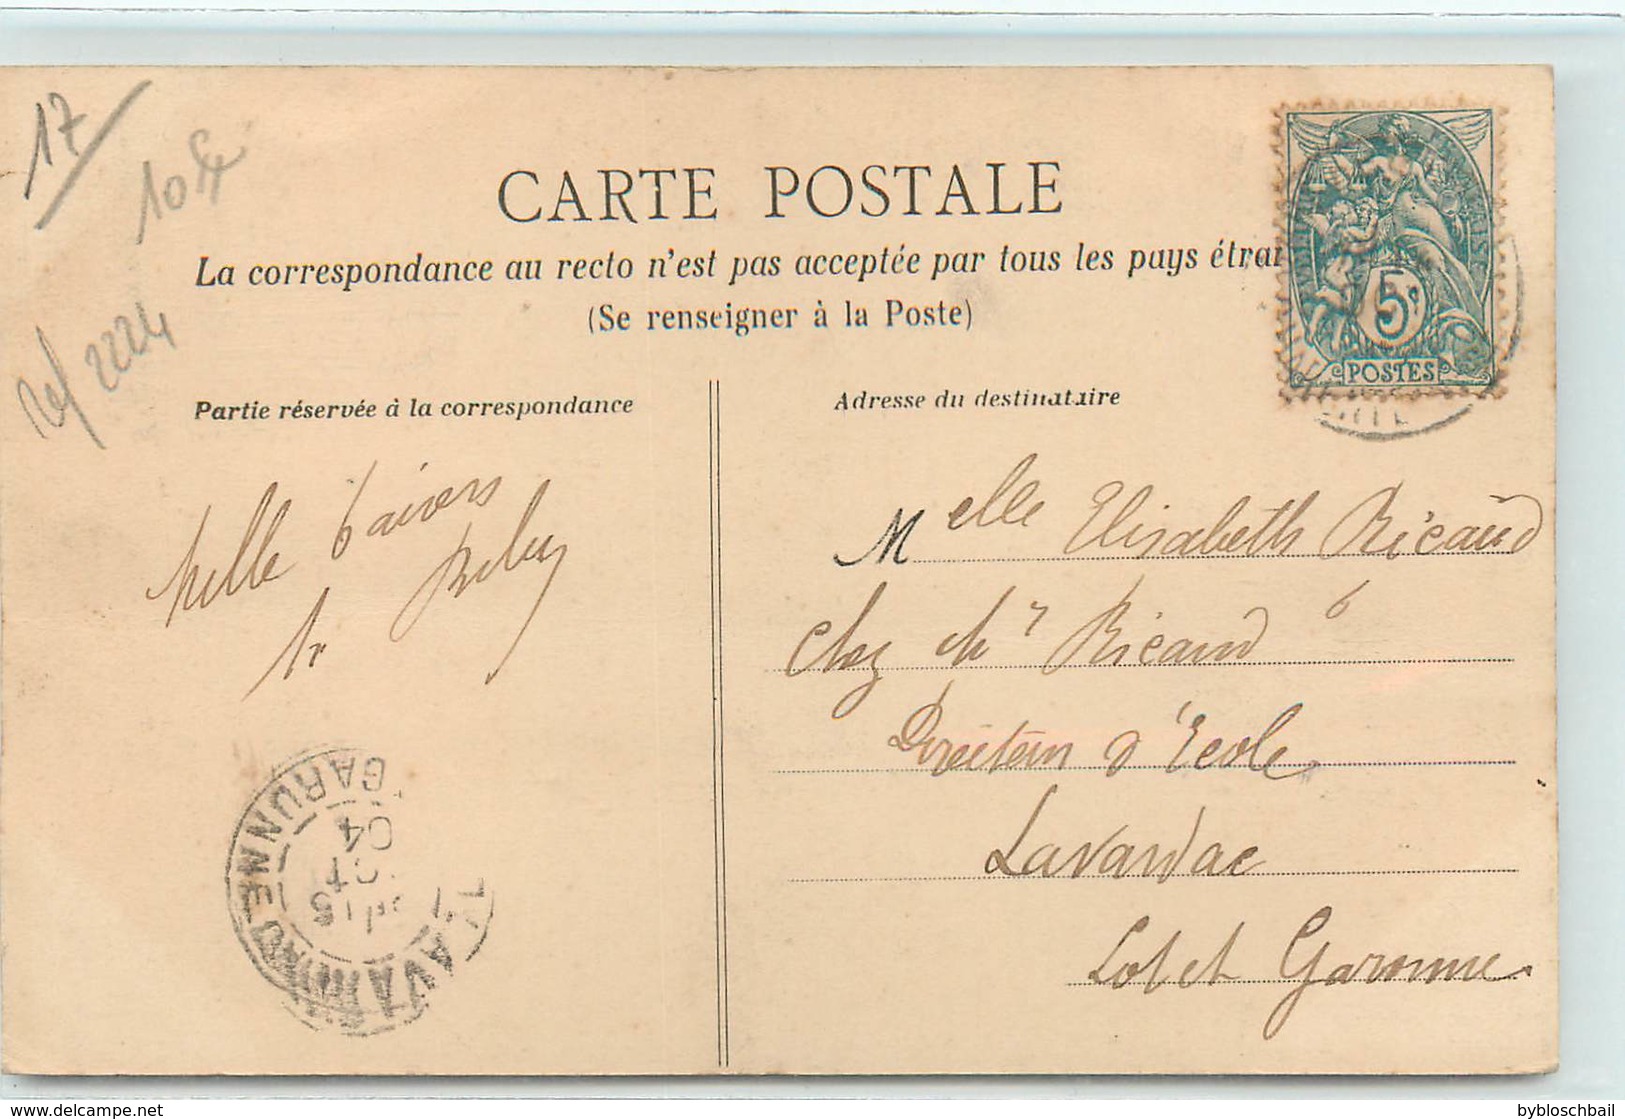 17
10
ref 2224
CARTE POSTALE
La correspondance au recto n'est pas acceptée par tous les pays étran
(Se renseigner à la Poste)
5c
POSTES
Partie réservée à la correspondance
Adresse du destinataire
Mille baisers
Melle Elisabeth Ricaud
Chez Mr Ricaud
Directeur d'Ecole
Lavardac
Lot et Garonne
LAVARDAC
5
OCT
04
GARONNE
www.delcampe.net
bybloschbail